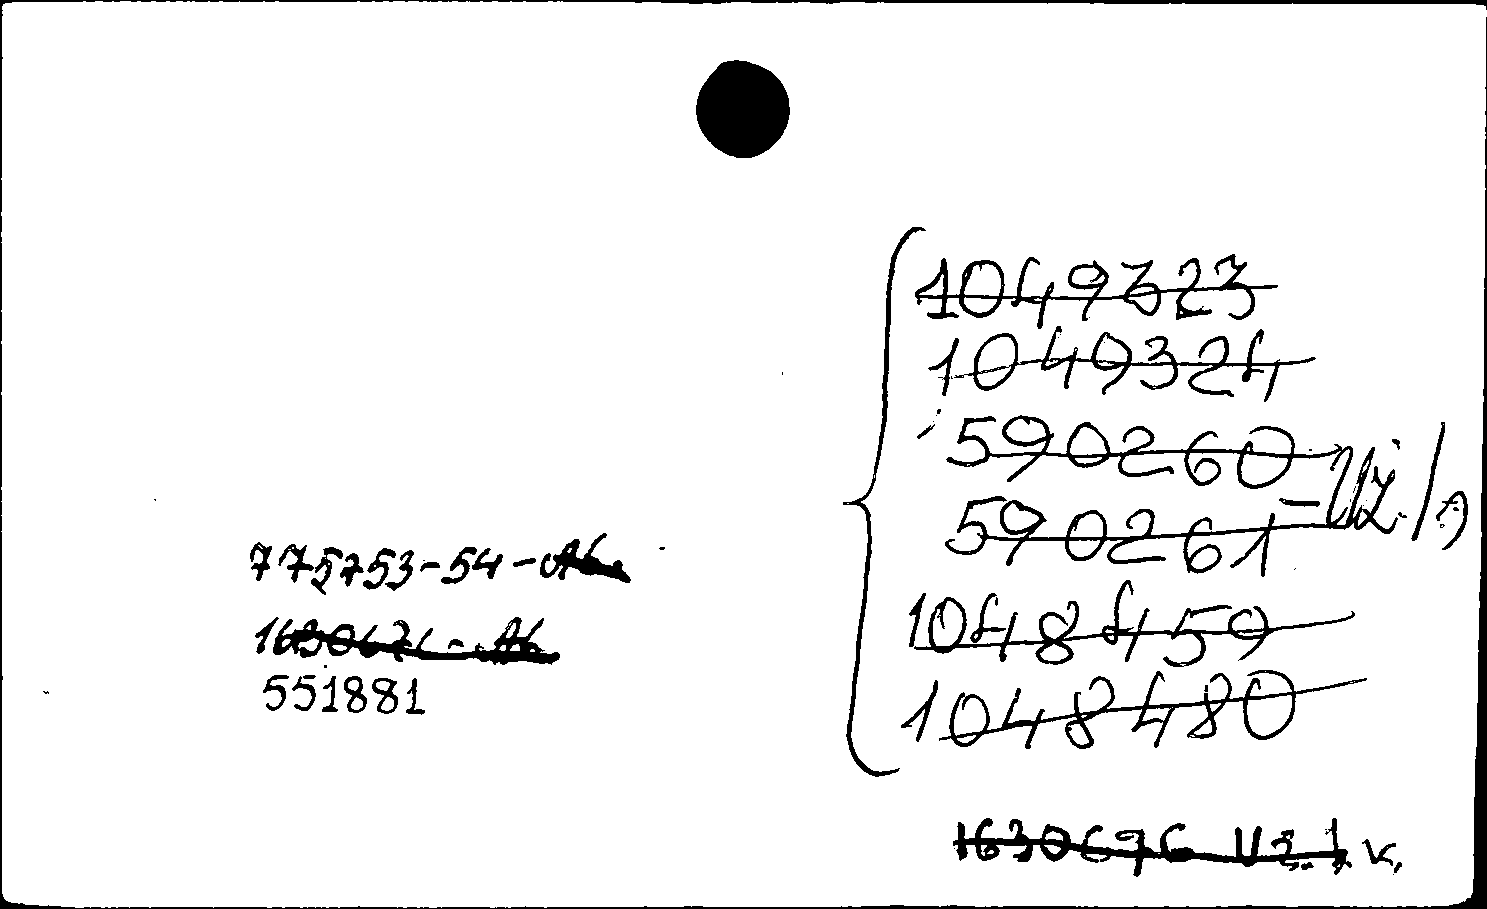 775753-54-Ab.
551881
1049323
1049324
590260
590261
1048459
1048480
1630676 Uz. 1 k.